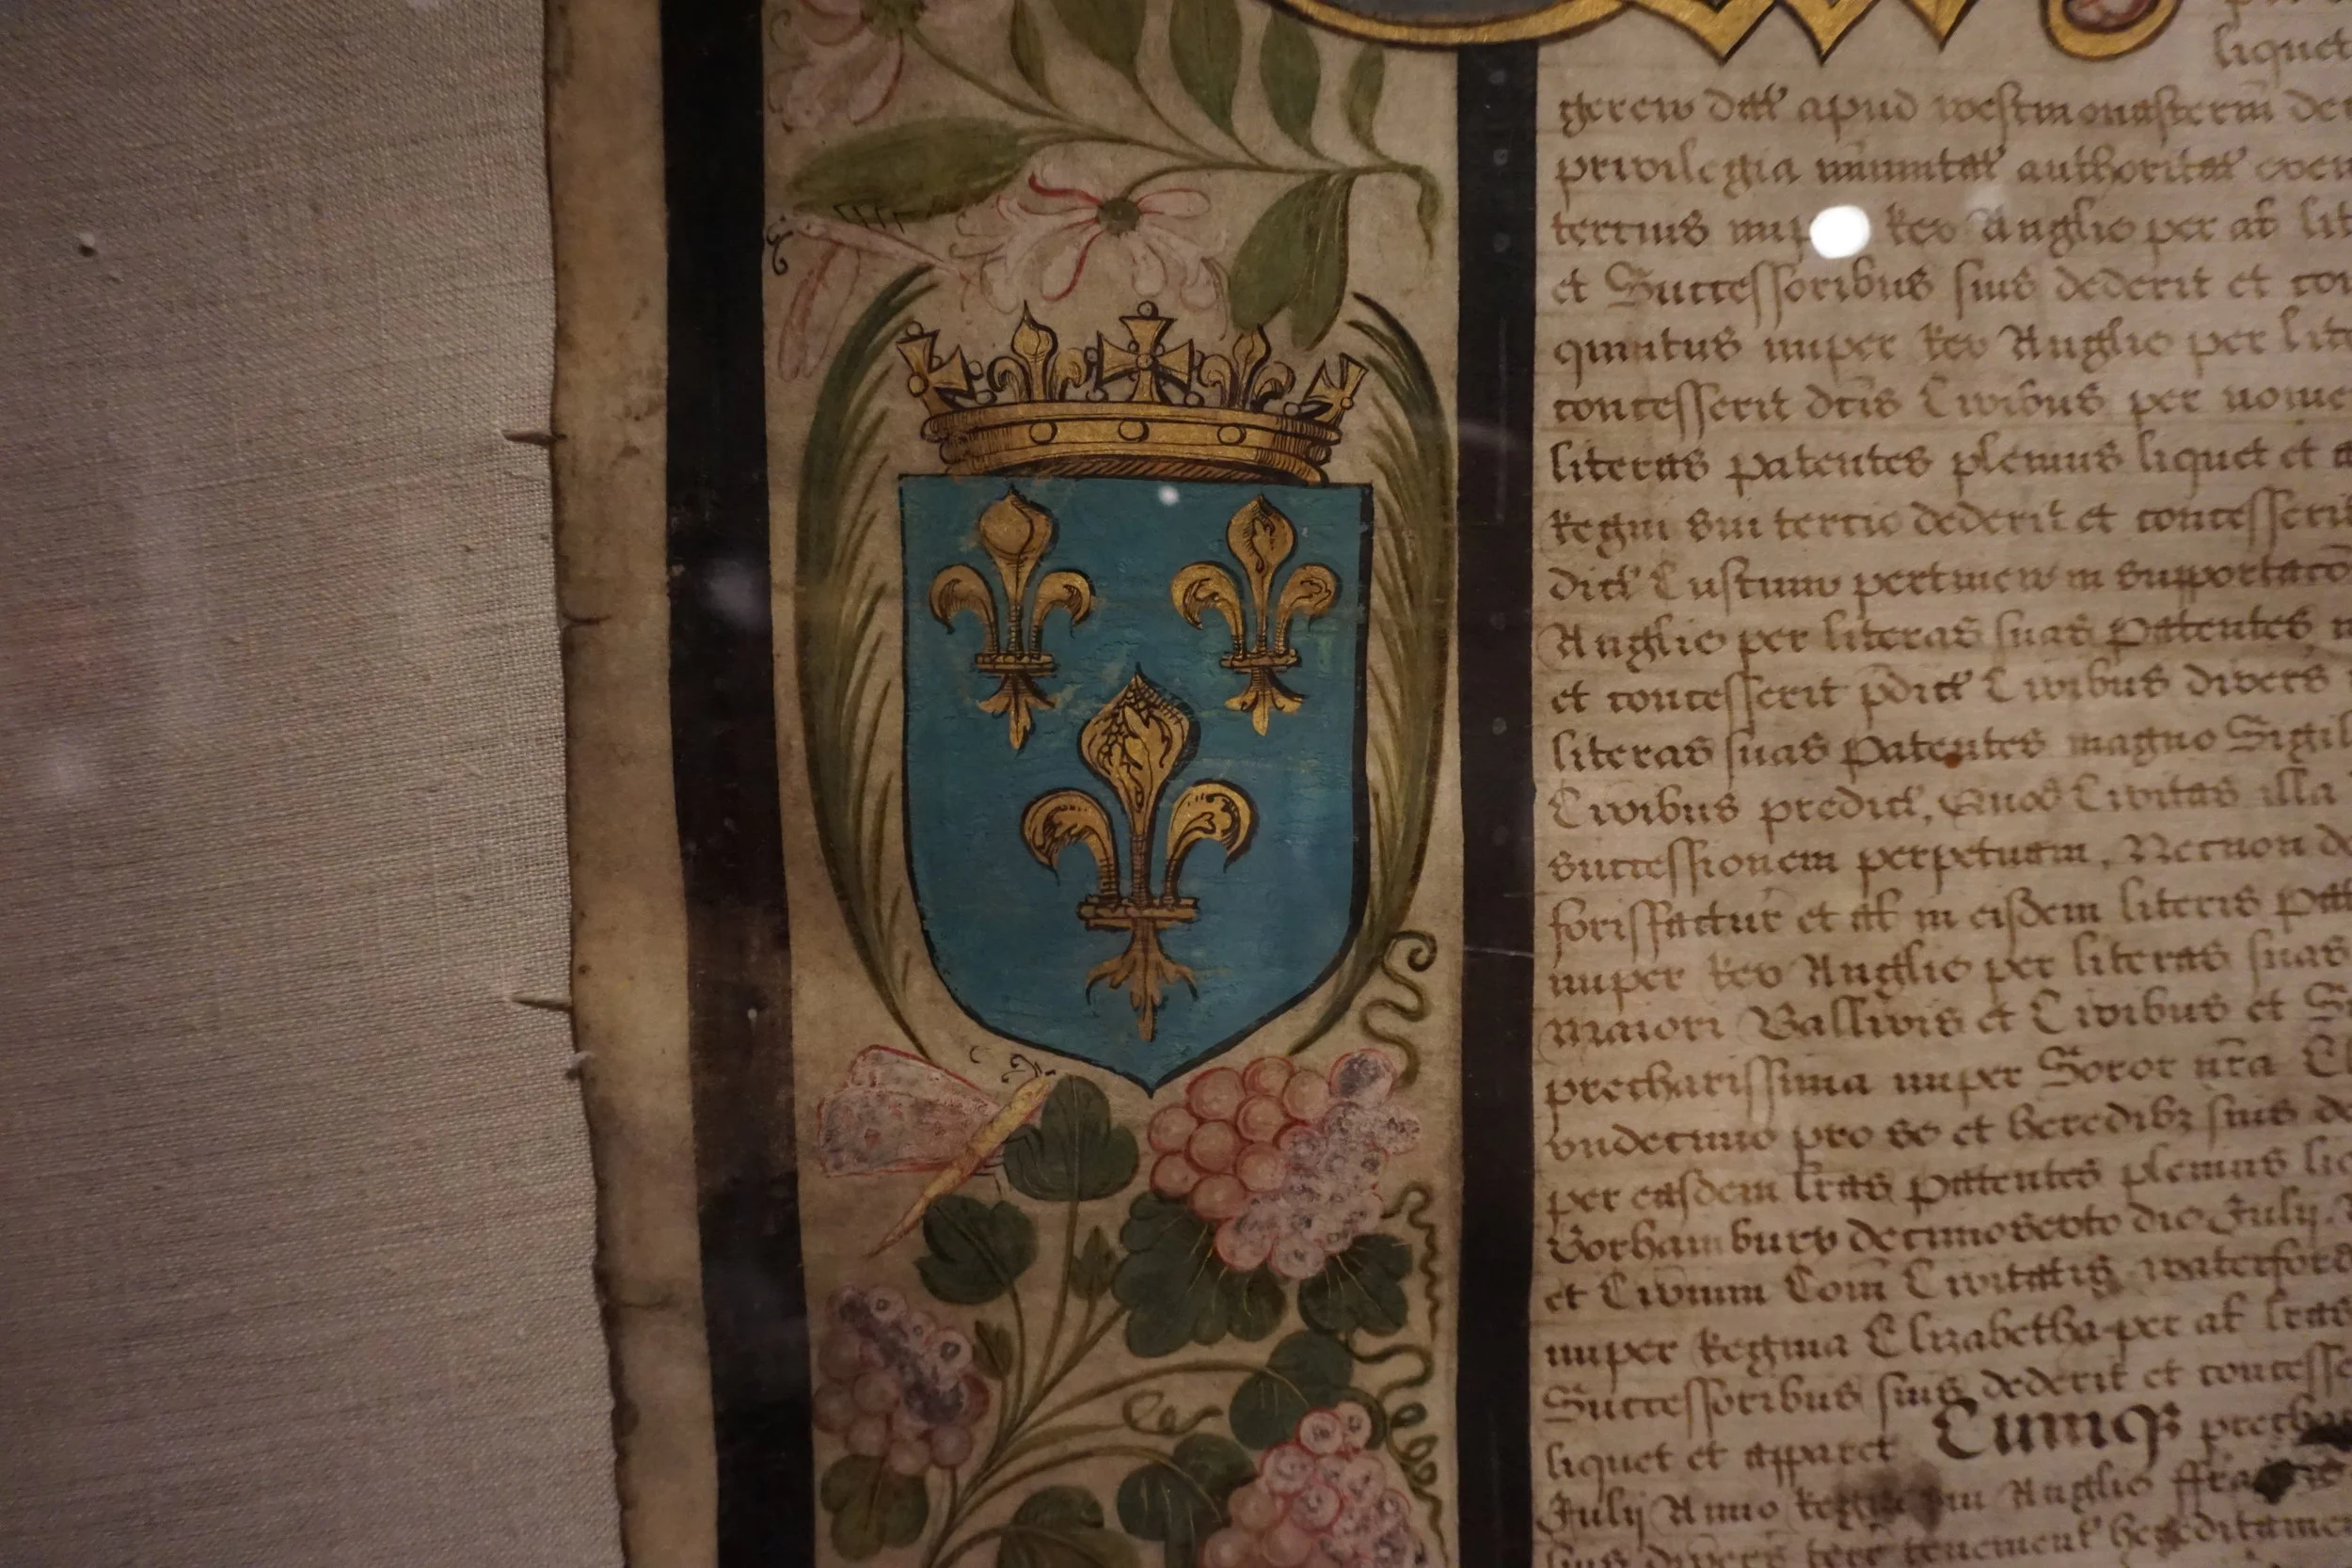 liquet
gerew datt apud westmonasteriu de
privilegia authoritat
tertius nup Rex Anglie per at lit
et Successoribus suis dederit et con
quintus nuper Rex Anglie per lite
concesserit dcis Civibus per nome
literas patentes plenius liquet et a
Regni sui tercio dederit et concesseri
dict Custumo pertinew in supportaco
Anglie per literas suas Patentes
et concesserit pdict Civibus divers
literas suas Patentes magno Sigil
Civibus predict, Quod Civitas illa
successionem perpetuam, Necnon de
forisfactur et at in eisdem literis Pat
nuper Rex Anglie per literas suas
Maiori Ballivis et Civibus et S
precharissima nuper Soror nra El
vndecimo pro se et heredibz suis d
per easdem lras Patentes plenius li
decimosexto die Julij
et Civium Com Civitatis waterford
nuper Regina Elizabetha per at lras
Successoribus suis dederit et concesse
liquet et apparet Cumq precha
Julij Anno Regni sui Anglie ffra
suis divers terr tenement hereditame